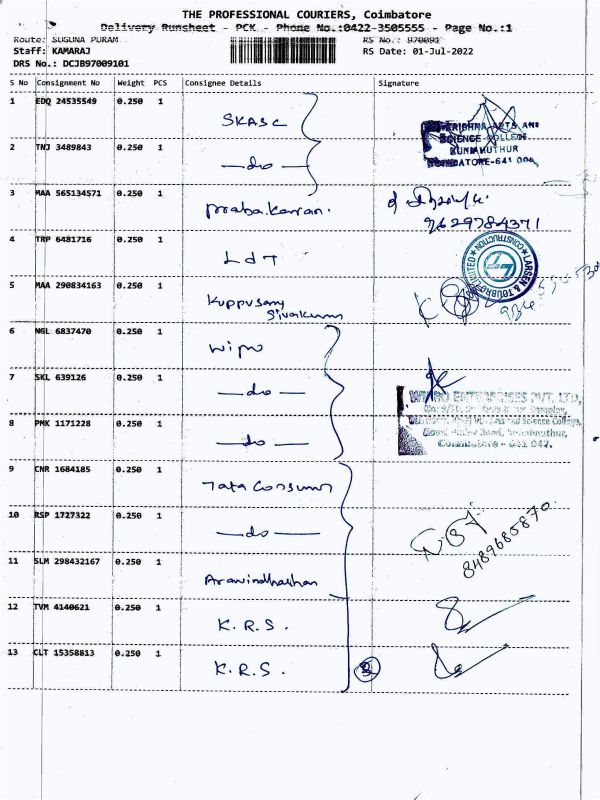 THE PROFESSIONAL COURIERS, Coimbatore
Delivery Runsheet - PCK - Phone No.:0422-3505555 - Page No.:1
Route: SUGUNA PURAM RS No.: 970091
Staff: KAMARAJ RS Date: 01-Jul-2022
DRS No.: DCJB97009101
S No Consignment No Weight PCS Consignee Details Signature
1 EDQ 24535549 0.250 1 SKASC
2 TNJ 3489843 0.250 1 —do—
SCIENCE COLLEGE
KUNIAMUTHUR
3 MAA 565134571 0.250 1 Prabakaran.
9629784371
4 TRP 6481716 0.250 1 L&T
LARSEN & TOUBRO LIMITED CONSTRUCTION
5 MAA 290834163 0.250 1 Kuppusamy
Sivakumar
6 NGL 6837470 0.250 1 Wipro
7 SKL 639126 0.250 1 —do—
WIPRO ENTERPRISES PVT. LTD,
8 PMK 1171228 0.250 1 —do—
Coimbatore - 641 042.
9 CNR 1684185 0.250 1 Tata Consumer
10 RSP 1727322 0.250 1 —do—
8489685870
11 SLM 298432167 0.250 1 Aravindhashan
12 TVM 4140621 0.250 1 K.R.S.
13 CLT 15358813 0.250 1 K.R.S.